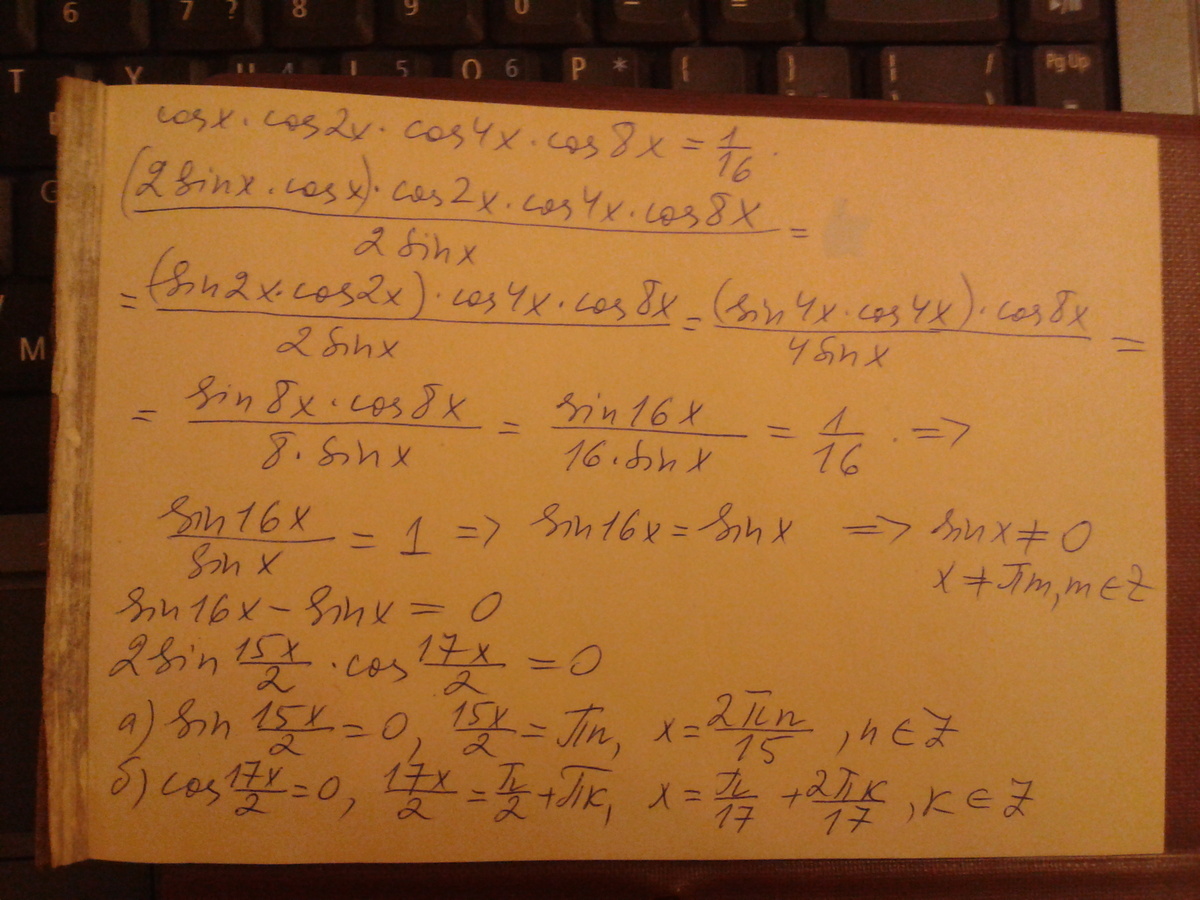 6 7 ? 8 9 0 – =
T Y U 4 I 5 O 6 P * [ ] \ / Pg Up
G
M
cosx · cos2x · cos4x · cos8x = 1/16.
(2sinx · cosx) · cos2x · cos4x · cos8x / 2sinx =
= (sin2x · cos2x) · cos4x · cos8x / 2sinx = (sin4x · cos4x) · cos8x / 4sinx =
= sin8x · cos8x / 8 · sinx = sin16x / 16 · sinx = 1/16 . =>
sin16x / sinx = 1 => sin16x = sinx => sinx ≠ 0
x ≠ πm, m ∈ Z
sin16x – sinx = 0
2sin 15x/2 · cos 17x/2 = 0
а) sin 15x/2 = 0, 15x/2 = πn, x = 2πn/15, n ∈ Z
б) cos 17x/2 = 0, 17x/2 = π/2 + πk, x = π/17 + 2πk/17, k ∈ Z